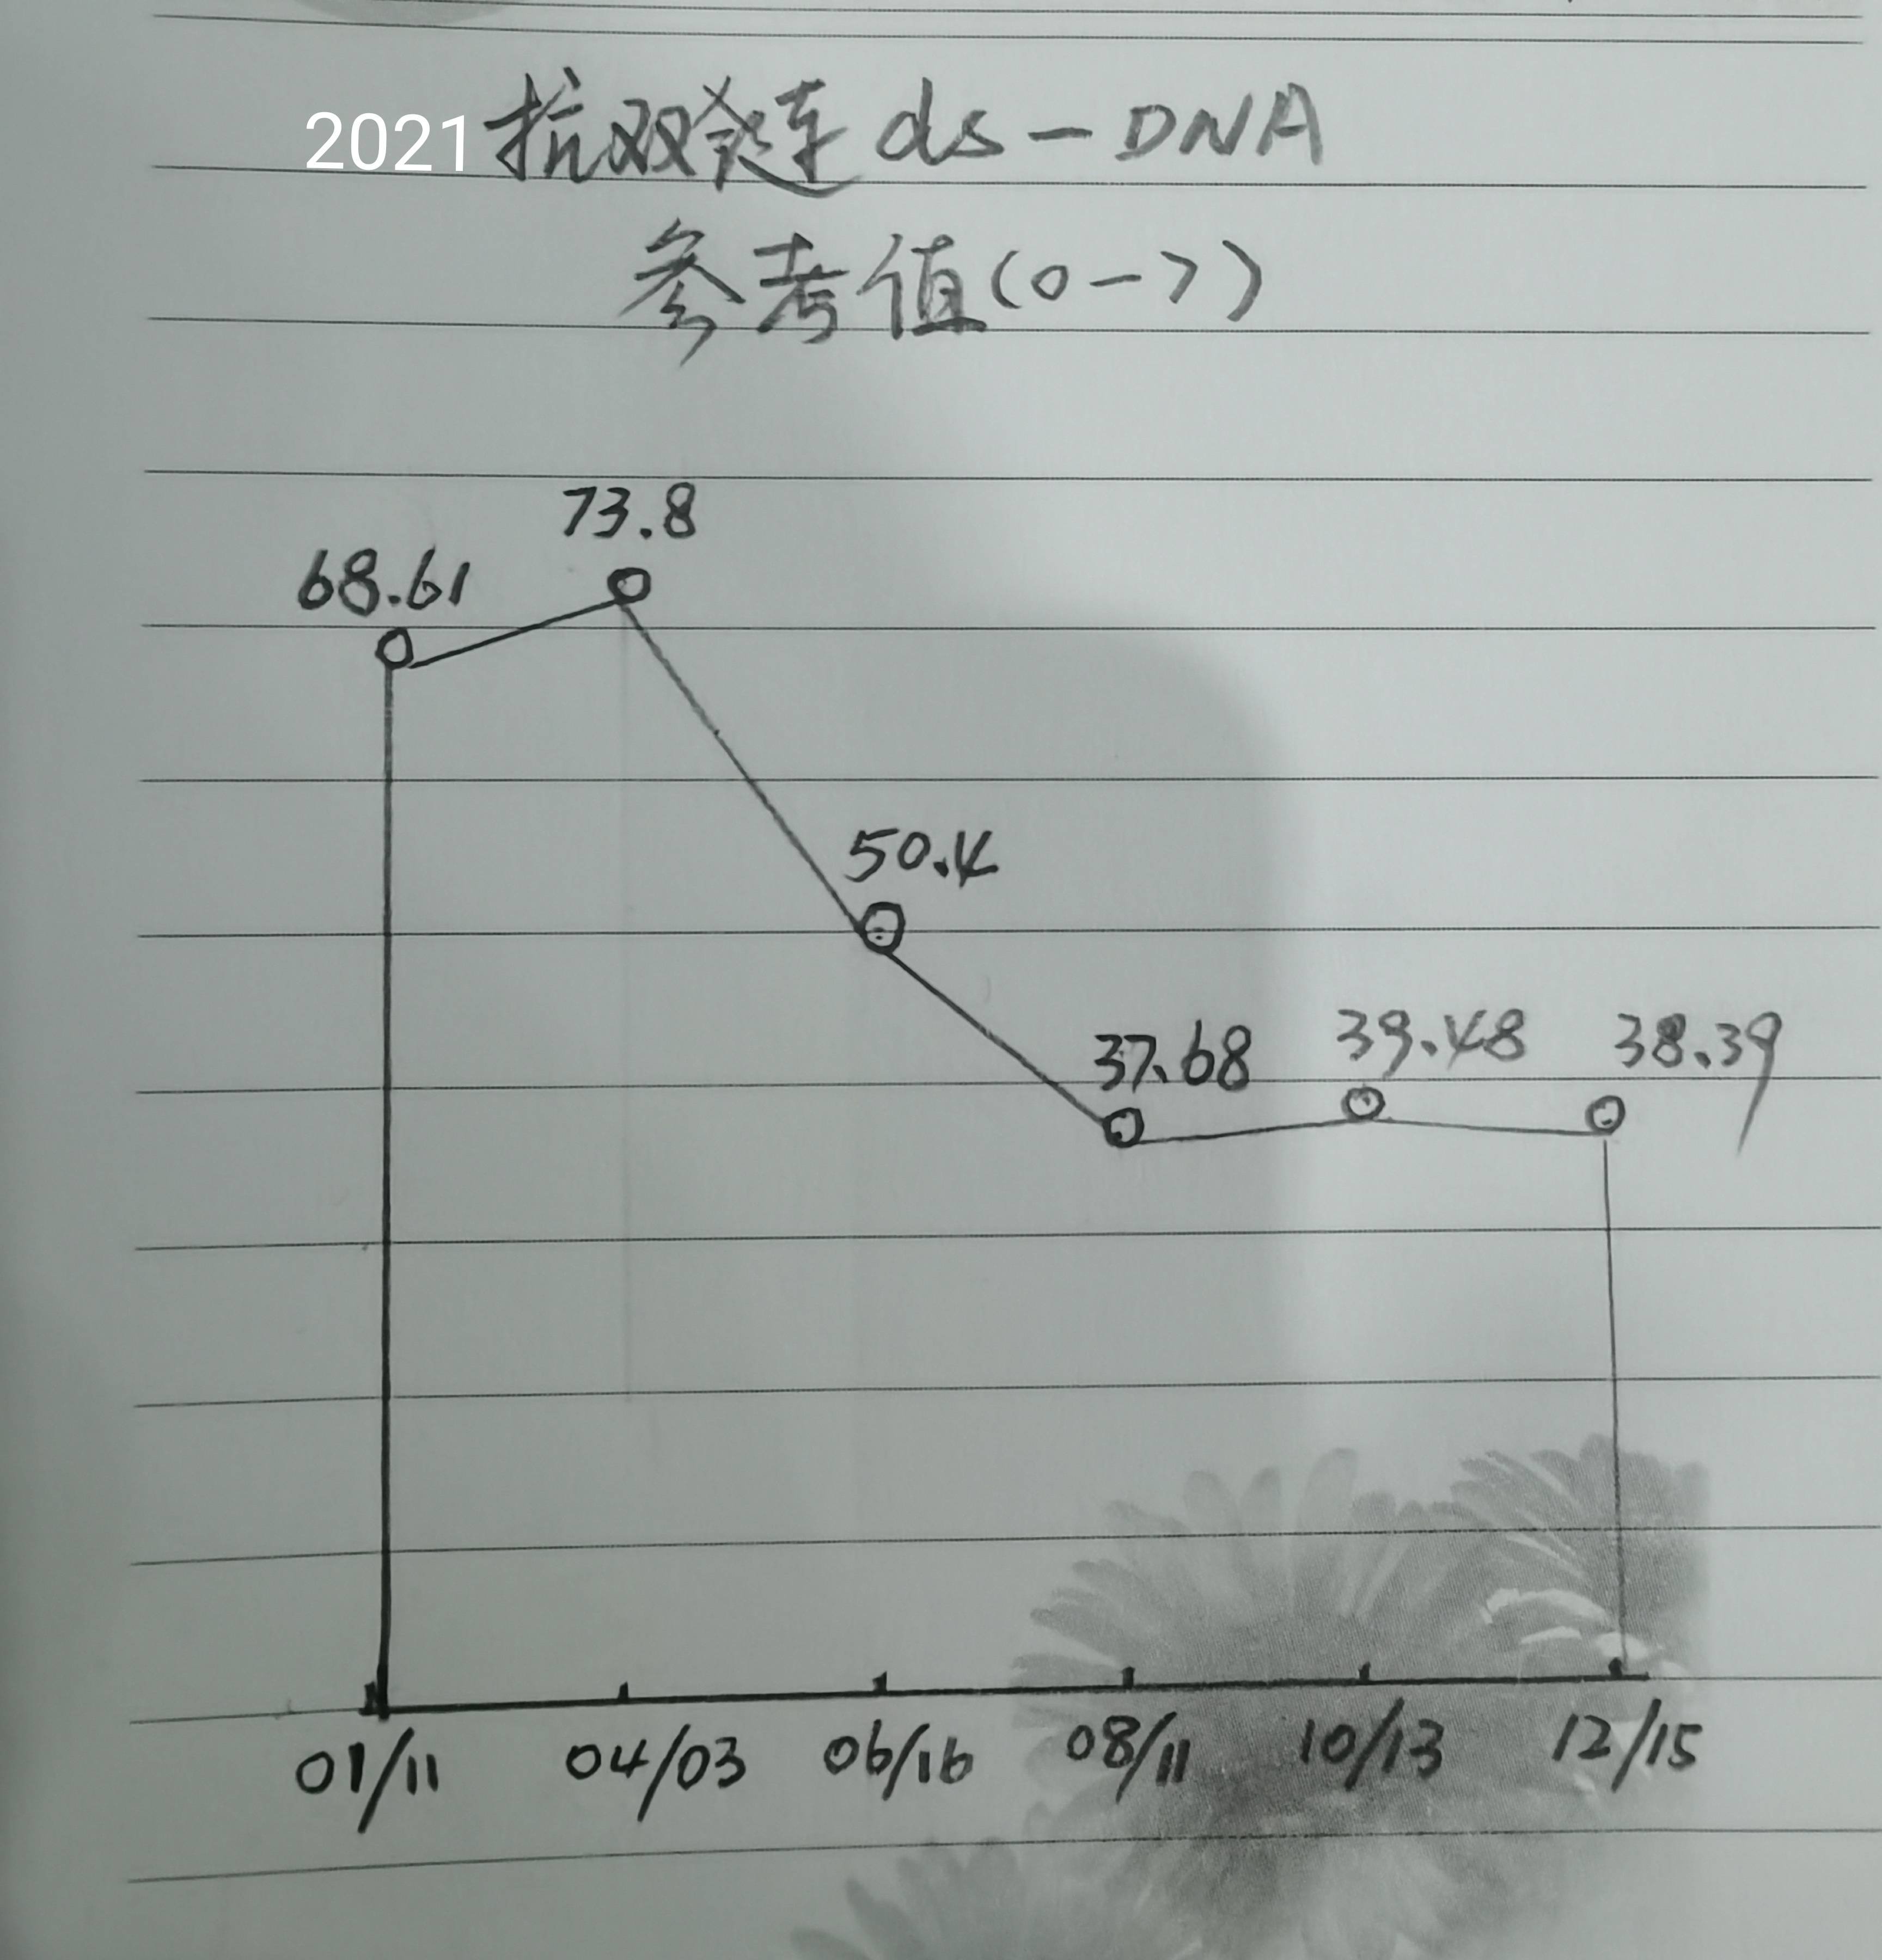 2021抗双链 ds-DNA
参考值(0-7)
73.8
68.61
50.4
37.68 39.48 38.39
01/11 04/03 06/16 08/11 10/13 12/15